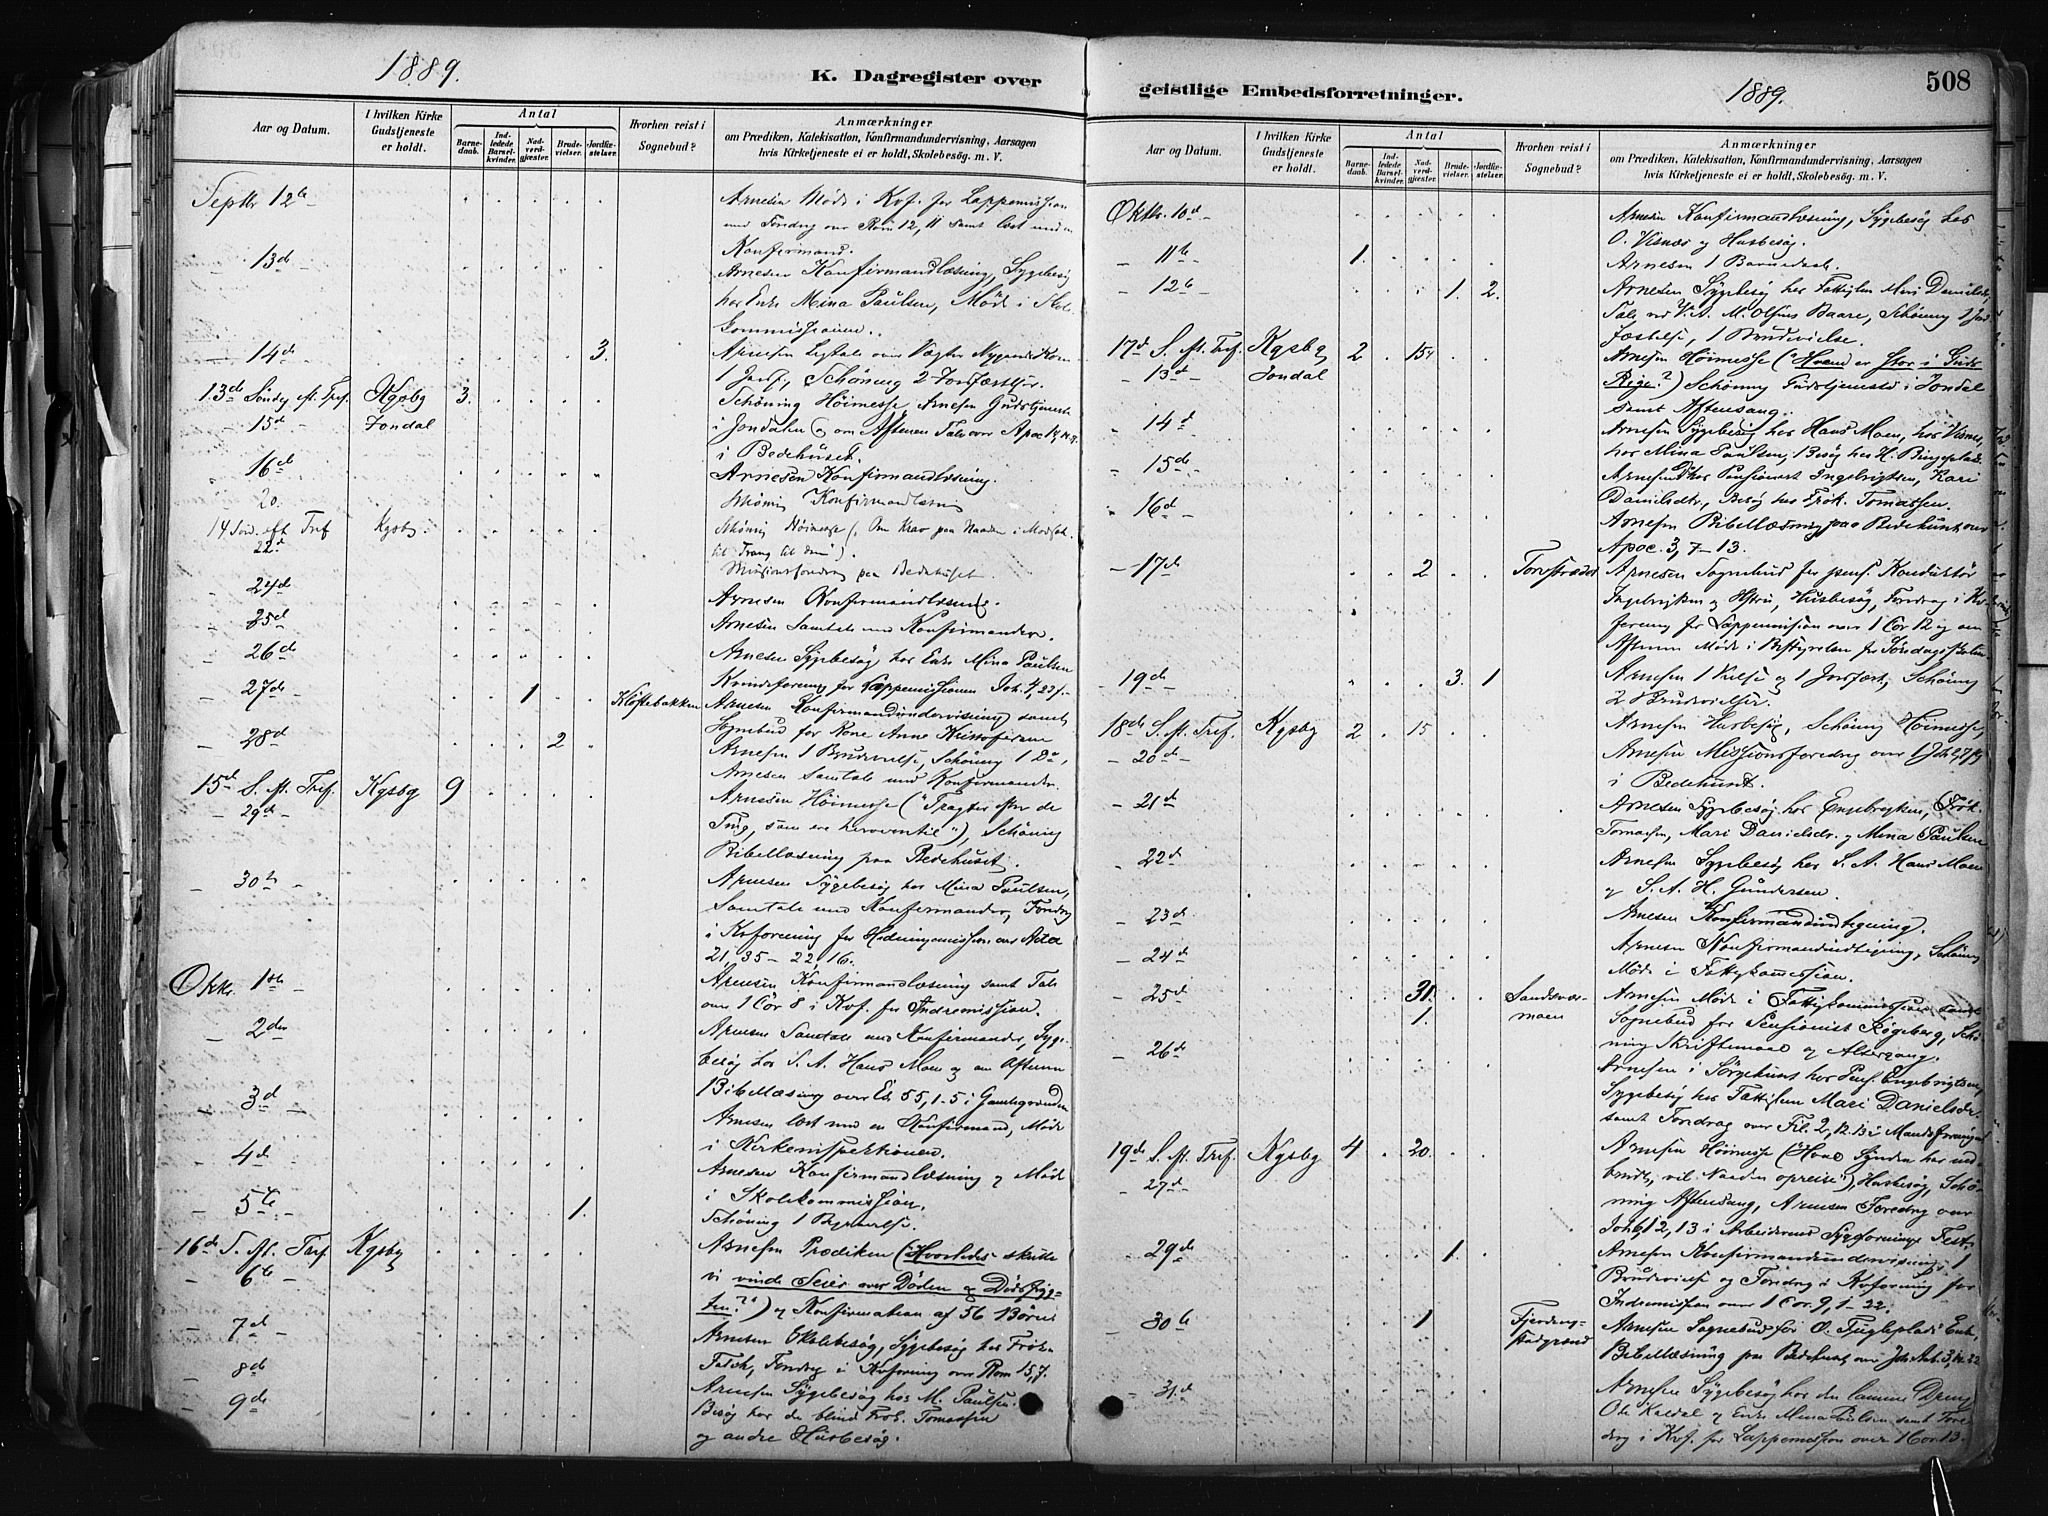 1889.
K. Dagregister over
Aar og Datum.
I hvilken Kirke Gudstjeneste er holdt.
Antal
Barnedaab.
Indledede Barselkvinder.
Nadverdgjester.
Brudevielser.
Jordfæstelser.
Hvorhen reist i Sognebud?
Anmærkninger
om Prædiken, Katekisation, Konfirmandundervisning, Aarsagen
hvis Kirketjeneste ei er holdt, Skolebesøg. m. V.
Septbr 12te Arnesen Møde i Kvf. for Lappemission
med Foredrag over Rom 12, 11 samt læst med en
Konfirmand.
13de Arnesen Konfirmandlæsning, Sygebesøg
hos Enke Mina Paulsen, Møde i Skole-
kommissionen.
14de 3. Arnesen
1 Jordf, Schöning 2 Jordfæstelser.
13de Søndag eft. Tref. Kgsbg 3. Schöning Høimesse, Arnesen Gudstjeneste
15de Jondal i Jondalen og om Aftenen Tale over Apoc
i Bedehuset.
16de Arnesen Konfirmandlæsning.
20. Schöning Konfirmandlæsning
14 Sønd. eft Tref Kgsbg. Schöning Høimesse (Om Krav paa Naaden i Modsæt.
22d til Trang til den).
Missionsforedrag paa Bedehuset.
24de Arnesen Konfirmandlæsning.
25d Arnesen Samtale med Konfirmander.
26de Arnesen Sygebesøg hos Enke Mina Paulsen
Kvindeforening for Lappemissionen Joh. 4,
27de 1 Kløftebakken Arnesen Konfirmandundervisning samt
Sognebud for Kone Anne Kristofersen
28de 2 Arnesen 1 Brudevielse, Schöning 1 Do,
Arnesen Samtale med Konfirmander.
15de S. eft. Tref. Kgsbg 9 Arnesen Høimesse ("Tragter efter de
29de Ting, som ere heroventil"), Schöning
Bibellæsning paa Bedehuset.
30te Arnesen Sygebesøg hos Mina Paulsen,
Samtale med Konfirmander, Foredrag
i Kvforening for Hedningemissionen over Acta
21, 35 – 22, 16.
Oktbr. 1ste Arnesen Konfirmandlæsning samt Tale
over 1 Cor 8 i Kvf. for Indremission.
2den Arnesen Samtale med Konfirmander, Syge-
besøg hos S. A. Hans Moen og om Aftenen
Bibellæsning over Es. 55, 1-5 i Gamlegrænden
3d Arnesen læst med en Konfirmand, Møde
i Kirkeinspektionen.
4de Arnesen Konfirmandlæsning og Møde
i Skolekommission.
5te 1. Schöning 1 Brudevielse.
16de S. eft. Tref. Kgsbg Arnesen Prædiken ("Hvorledes skulle
6te vi vinde Seier over Døden og Dødsfryg-
ten?") og Konfirmation af 56 Børn
7de Arnesen Skolebesøg, Sygebesøg hos Frøk.
Foredrag i Kvforening over Rom 15, 7.
8de Arnesen Sygebesøg hos M. Paulsen.
9de Besøg hos den blinde Frk. Tomassen
og andre Husbesøg.
geistlige Embedsforretninger.
1889.
508
Aar og Datum.
I hvilken Kirke Gudstjeneste er holdt.
Antal
Barnedaab.
Indledede Barselkvinder.
Nadverdgjester.
Brudevielser.
Jordfæstelser.
Hvorhen reist i Sognebud?
Anmærkninger
om Prædiken, Katekisation, Konfirmandundervisning, Aarsagen
hvis Kirketjeneste ei er holdt, Skolebesøg. m. V.
Oktbr. 10d Arnesen Konfirmandlæsning, Sygebesøg hos
O. Visnæs og Husbesøg.
11te 1. Arnesen 1 Barnedaab.
12te 1. 2. Arnesen Sygebesøg hos Fattiglem Mari Danielsdr,
Tale ved Olsens Baare, Schöning 1 Jord-
fæstelse, 1 Brudevielse.
17de S. eft. Tref. Kgsbg 2 Arnesen Høimesse ("Hvem er stor i Guds
13de Jondal Rige?") Schöning Gudstjeneste i Jondal
samt Aftensang.
14de Arnesen Sygebesøg hos Hans Moen, hos Visnæs,
15de hos Mina Paulsen, Besøg hos
Arnesen hos Pensionist Ingebrigtsen, Kari
16de Danielsdtr, Besøg hos Frøk. Tomassen.
Arnesen Bibellæsning paa Bedehuset over
Apoc. 3, 7-13.
17de 2 Arnesen Sognebud for pens. Konduktör
Ingebrigtsen og Hustru, Husbesøg, Foredrag i Kv-
forening for Lappemission over 1 Cor 12 og om
Aftenen Møde i Bestyrelsen for Søndagsskolen
19de 3. 1 Arnesen 1 Vielse og 1 Jordfæst., Schöning
2 Brudevielser.
18de S. eft. Tref. Kgsbg 2 15 Arnesen Husbesøg, Schöning Høimesse,
20de Arnesen Missionsforedrag over
i Bedehuset.
21de Arnesen Sygebesøg hos Frøk.
Tomassen, Mari Danielsdr. og Mina Paulsen
22de Arnesen Sygebesøg hos S. A. Hans Moen
og S. A. H. Gundersen.
23de Arnesen Konfirmandindtegning.
24de Arnesen Konfirmandindtegning, Schöning
Møde i Fattigkommission.
25de 31. Sandsvær- Arnesen Møde i Fattigkommission samt
1. moen Sognebud for Pensionist Røgeberg, Schö-
26de ning Skriftemaal og Altergang.
Arnesen i Sørgehuset hos Pens. Engebrigtsen,
Sygebesøg hos Fattiglem Mari Danielsdr.
samt Foredrag over Fil. 2, 12. 13 i Mandsforeningen
19de S. eft. Tref. Kgsbg 4 20. Arnesen Høimesse ("Hvad Synden har ned-
27de brudt, vil Naaden opreise"), Husbesøg, Schö-
ning Aftensang, Arnesen Foredrag over
12, 13 i Arbeidernes Sygeforenings Fest.
29de 1. Arnesen Konfirmandundervisning, 1
Brudevielse og Foredrag i Kvforening for
Indremission over 1 Cor. 9, 1-22.
30te 1 Fjerdings- Arnesen Sognebud for O. Fugleplads Enke,
stadgrænd Bibellæsning paa Bedehuset over
31de Arnesen Sygebesøg hos den lamme Dreng
Ole Kaldal og Enke Mina Paulsen samt Fore-
drag i Kvf. for Lappemission over 1 Cor 13.